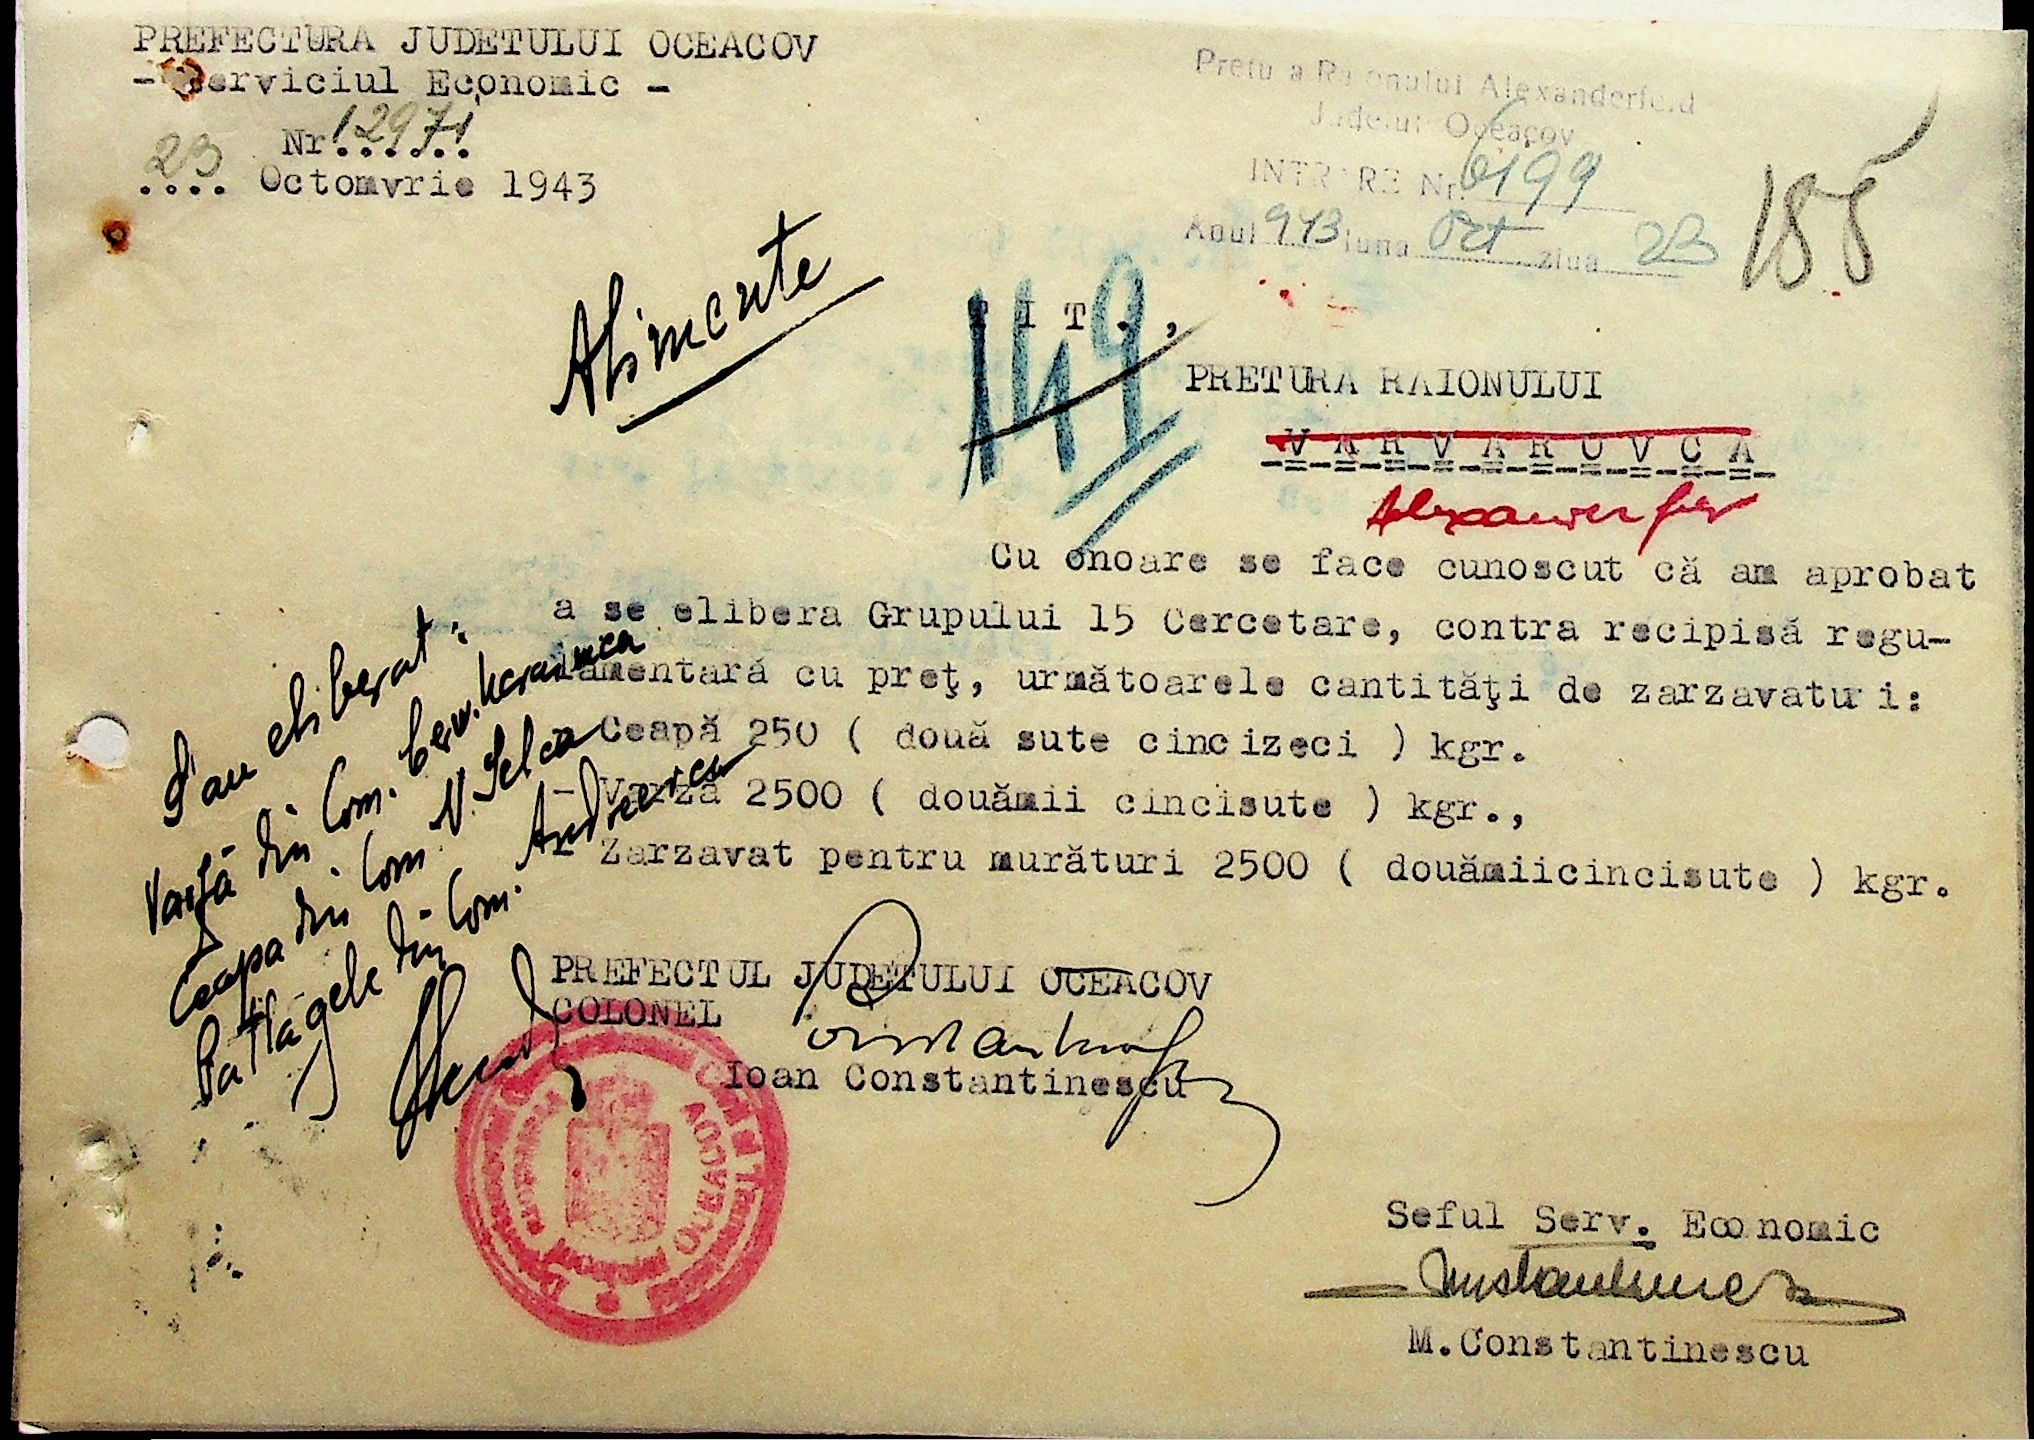 PREFECTURA JUDETULUI OCEACOV
- Serviciul Economic -
Nr 12971
23 Octomvrie 1943
Pretura Raionului Alexanderfeld
Judetul Oceacov
INTRARE Nr. 6199
Anul 943 luna Oct ziua 23
185
Alimente
149
T I T . ,
PRETURA RAIONULUI
V A R V A R O V C A
Cu onoare se face cunoscut că am aprobat
a se elibera Grupului 15 Cercetare, contra recipisă regu-
lamentară cu preţ, următoarele cantităţi de zarzavaturi:
- Ceapă 250 ( două sute cincizeci ) kgr.
- Varză 2500 ( douămii cincisute ) kgr.,
- Zarzavat pentru murături 2500 ( douămiicincisute ) kgr.
S'au eliberat:
Varză din Com.
Ceapa din Com. N.
Patlagele din Com.
PREFECTUL JUDETULUI OCEACOV
COLONEL
Ioan Constantinescu
OCEACOV
Seful Serv. Economic
M.Constantinescu